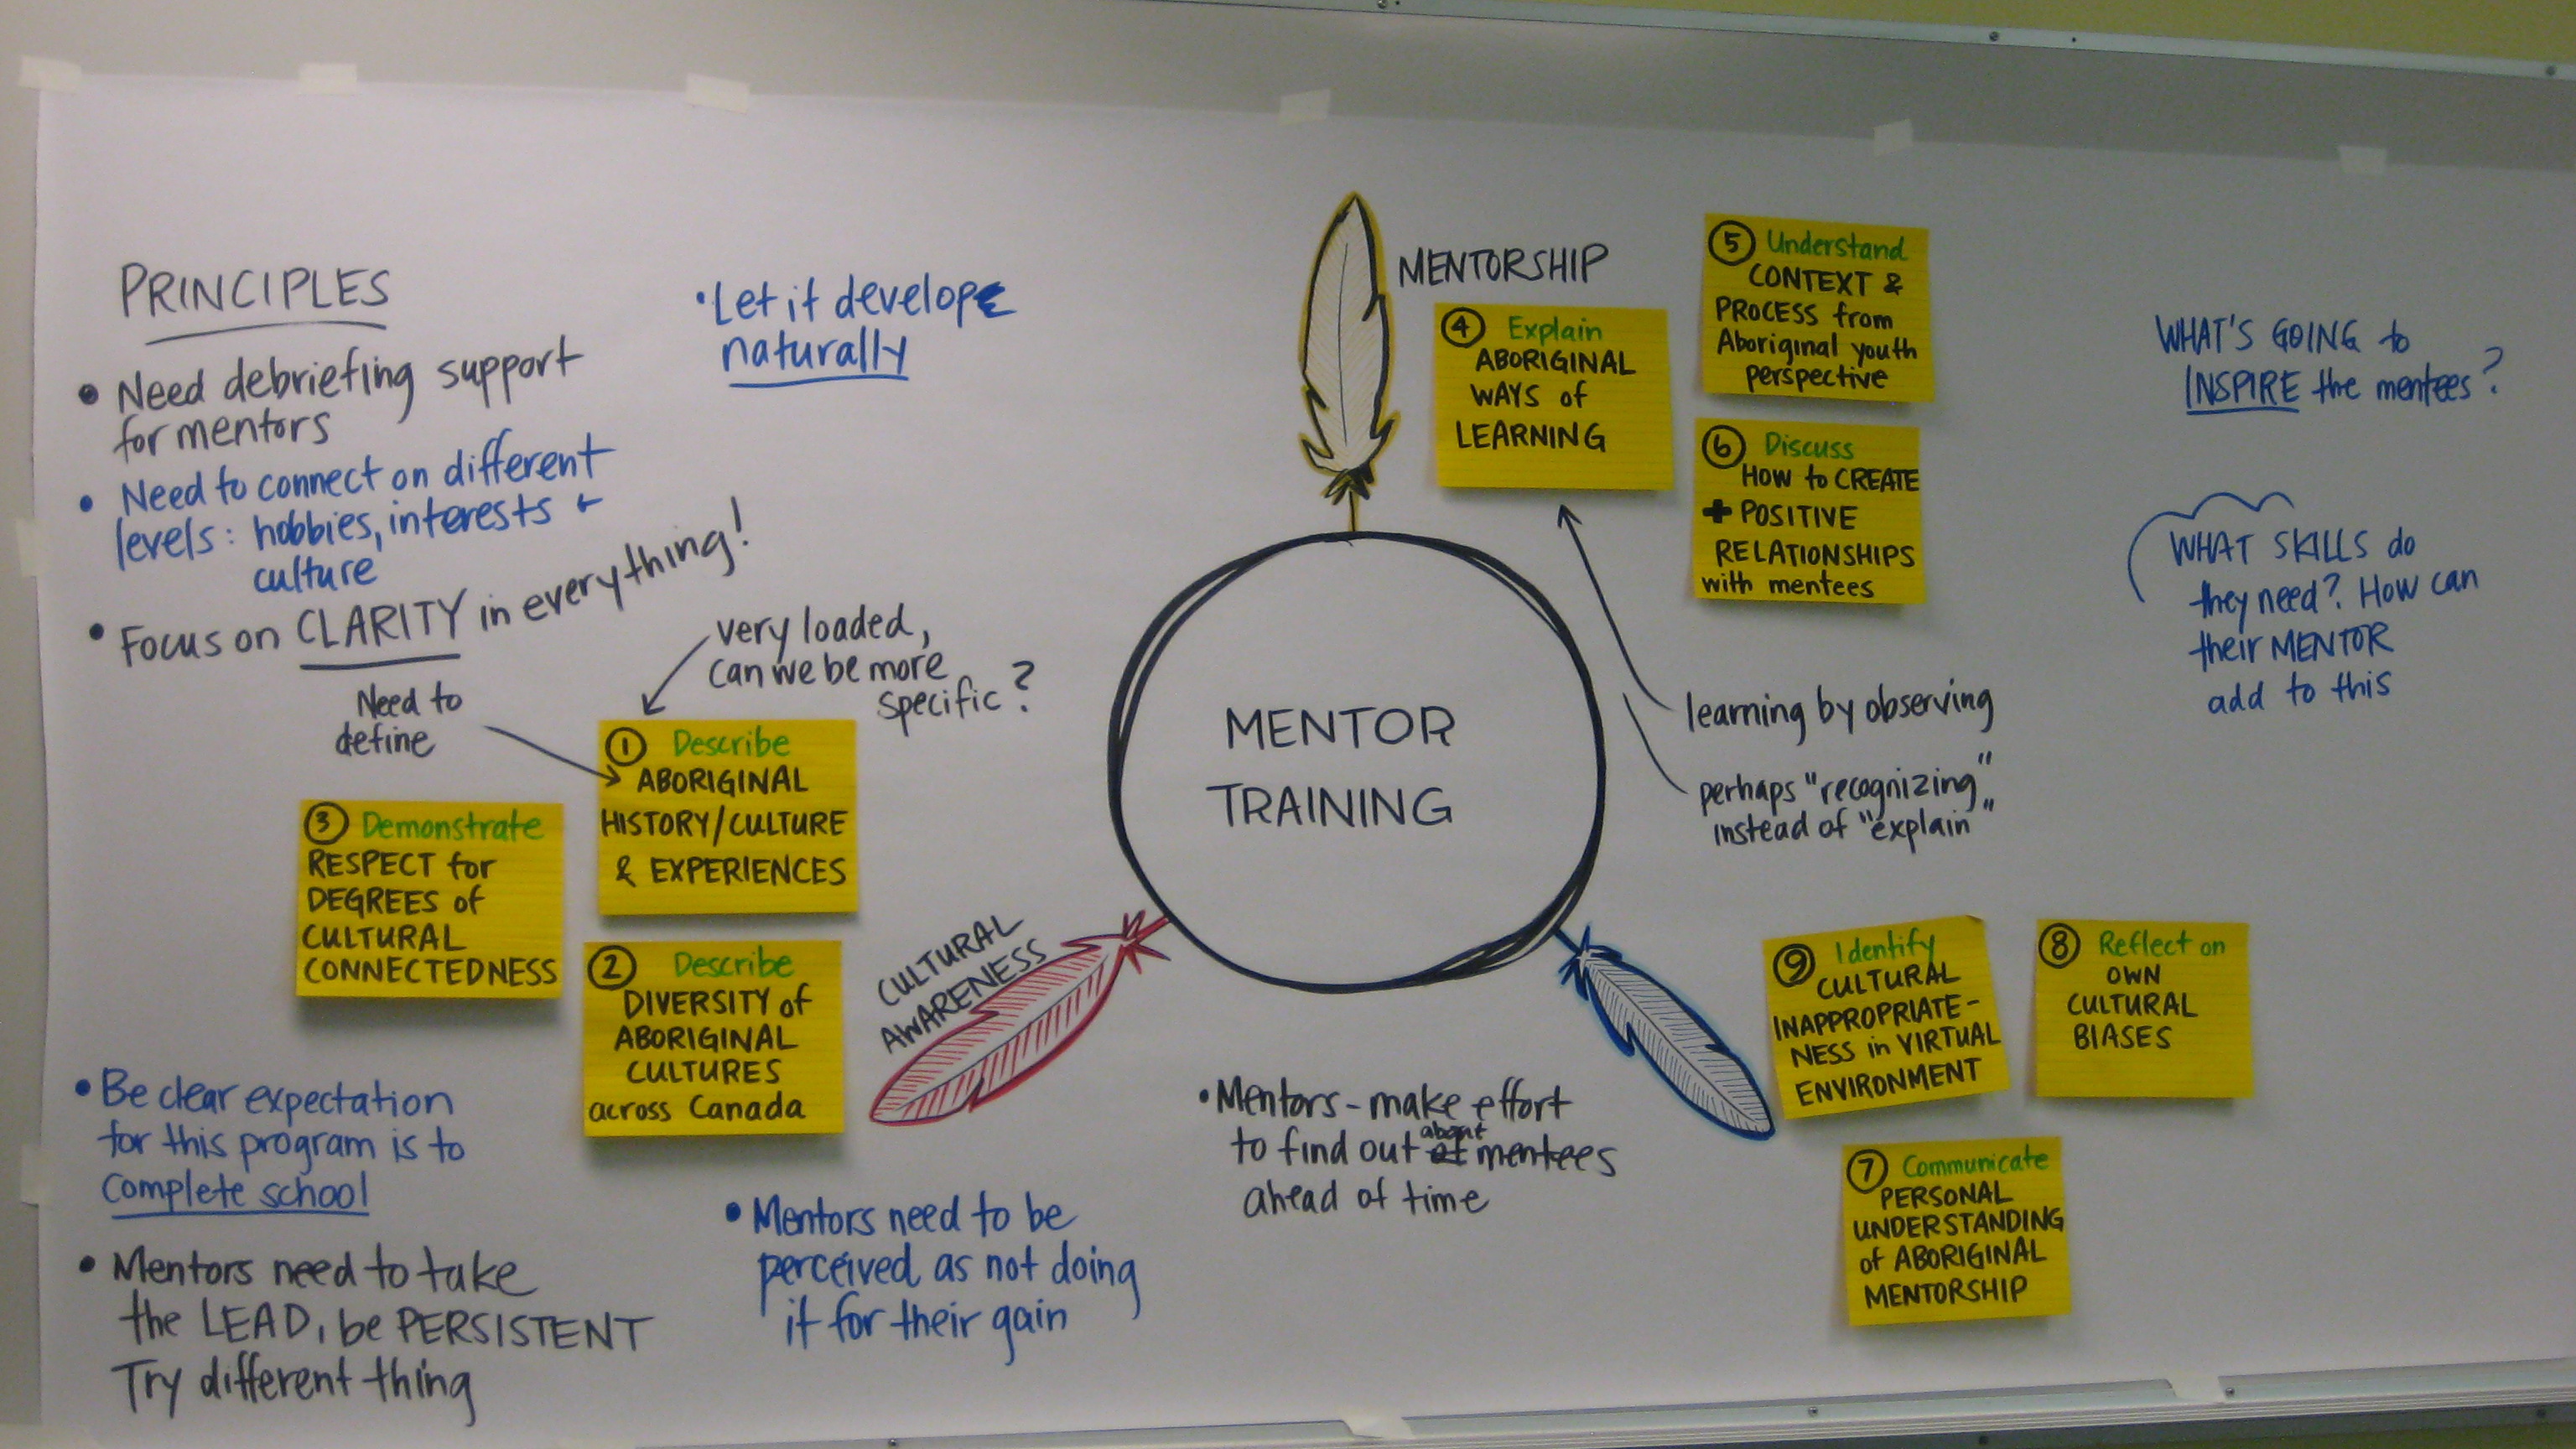 PRINCIPLES
• Need debriefing support
for mentors
• Need to connect on different
levels: hobbies, interests +
culture
• Focus on CLARITY in everything!
• Let it develope
naturally
Need to
define
very loaded,
can we be more
specific?
① Describe
ABORIGINAL
HISTORY/CULTURE
& EXPERIENCES
③ Demonstrate
RESPECT for
DEGREES of
CULTURAL
CONNECTEDNESS
② Describe
DIVERSITY of
ABORIGINAL
CULTURES
across Canada
CULTURAL
AWARENESS
• Be clear expectation
for this program is to
complete school
• Mentors need to take
the LEAD, be PERSISTENT
Try different thing
• Mentors need to be
perceived as not doing
it for their gain
MENTOR
TRAINING
• Mentors - make effort
to find out about mentees
ahead of time
MENTORSHIP
④ Explain
ABORIGINAL
WAYS of
LEARNING
⑤ Understand
CONTEXT &
PROCESS from
Aboriginal youth
perspective
⑥ Discuss
HOW to CREATE
+ POSITIVE
RELATIONSHIPS
with mentees
learning by observing
perhaps "recognizing"
instead of "explain"
WHAT'S GOING to
INSPIRE the mentees?
WHAT SKILLS do
they need? How can
their MENTOR
add to this
⑨ Identify
CULTURAL
INAPPROPRIATE-
NESS in VIRTUAL
ENVIRONMENT
⑧ Reflect on
OWN
CULTURAL
BIASES
⑦ Communicate
PERSONAL
UNDERSTANDING
of ABORIGINAL
MENTORSHIP